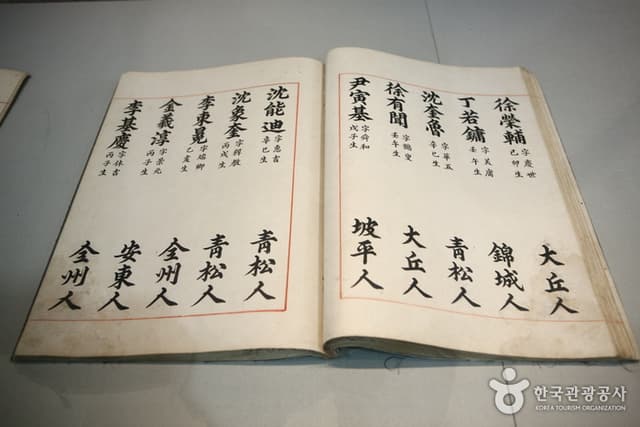 徐榮輔 字慶世 己卯生 大丘人
丁若鏞 字美庸 壬午生 錦城人
沈奎魯 字華五 辛巳生 青松人
徐有聞 字鶴叟 壬午生 大丘人
尹寅基 字舜和 戊子生 坡平人
沈能迪 字惠吉 辛巳生 青松人
沈象奎 字穉教 丙戌生 青松人
李東冕 字端卿 乙亥生 全州人
金羲淳 字景元 丙子生 安東人
李基慶 字休吉 丙子生 全州人
한국관광공사
KOREA TOURISM ORGANIZATION